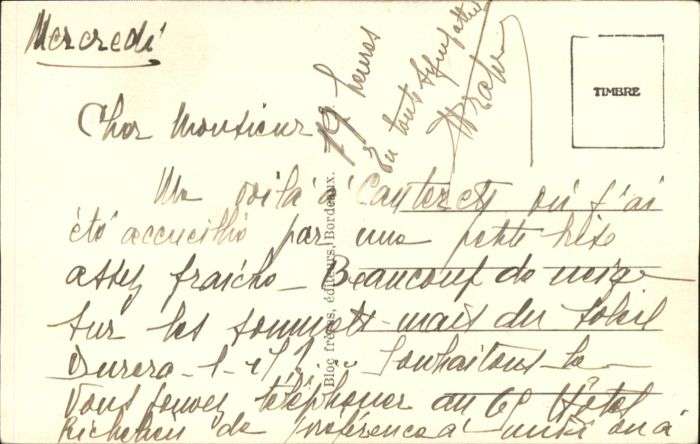 Mercredi
Cher Monsieur
Me voilà à Cauterets où j'ai
été accueillie par une petite bise
assez fraîche - Beaucoup de neige
sur les sommets - mais du soleil
Durera-t-il ? ... Souhaitons le
Vous pouvez téléphoner au 69 Hôtel
Richelieu de préférence à midi ou à
19 heures
En toute sympathie
TIMBRE
Bloc frères, éditeurs, Bordeaux.